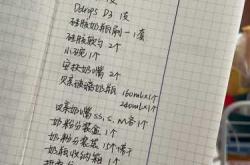 Ddrops D3 1支
硅胶奶瓶刷 1套
硅胶软勺 2个
小碗 1个
宝扶奶嘴 2个
贝亲玻璃奶瓶 160ml×1个
240ml×1个
贝亲奶嘴 ss, s, m各1个
奶粉分装盒 1个
奶粉分装袋 15个
奶瓶收纳箱 1个